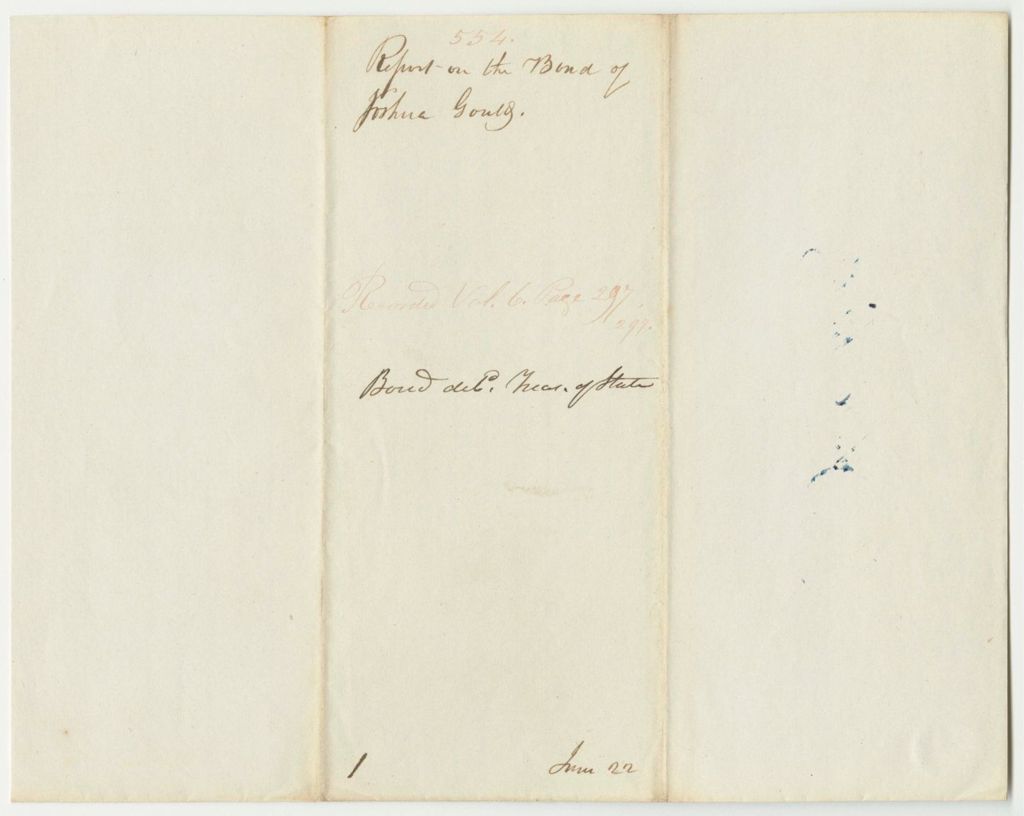 534.
Report on the Bond of
Joshua Gould.
Recorded Vol. 6. Page 297.
297.
Bond deld. Treas. of State
1
June 22